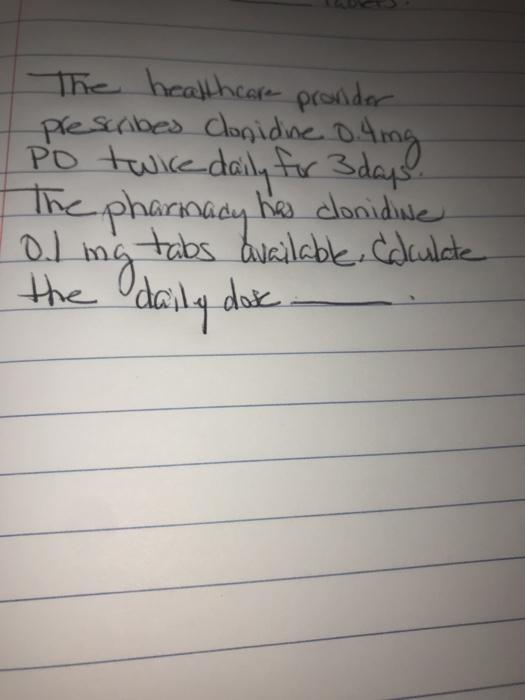 Tablets.
The healthcare provider
prescribes Clonidine 0.4mg
PO twice daily for 3 days.
The pharmacy has clonidine
0.1 mg tabs available. Calculate
the daily dose ______.